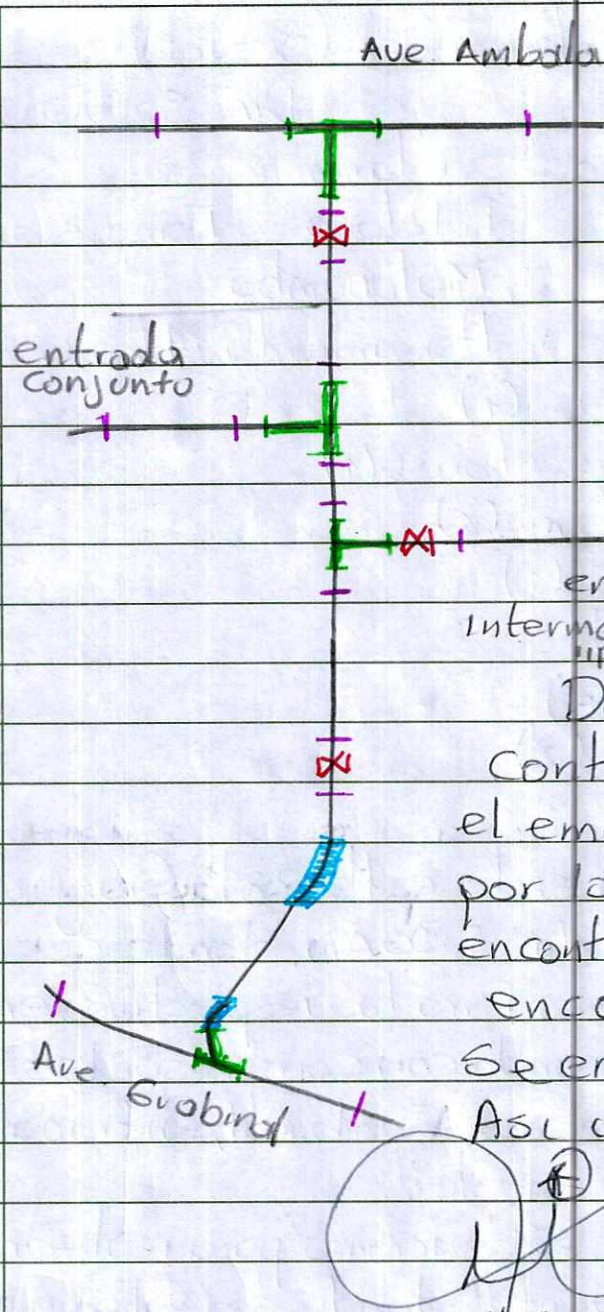 Ave Ambala
entrada
conjunto
en
interme
D
Cort
el em
por la
encont
enco
Se en
Ave Guabinal
Asi